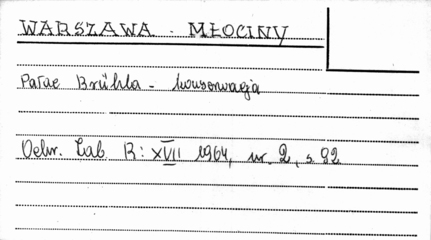 WARSZAWA - MŁOCINY
Pałac Brühla - konserwacja
Ochr. Zab. R: XVII 1964, nr. 2, s. 92